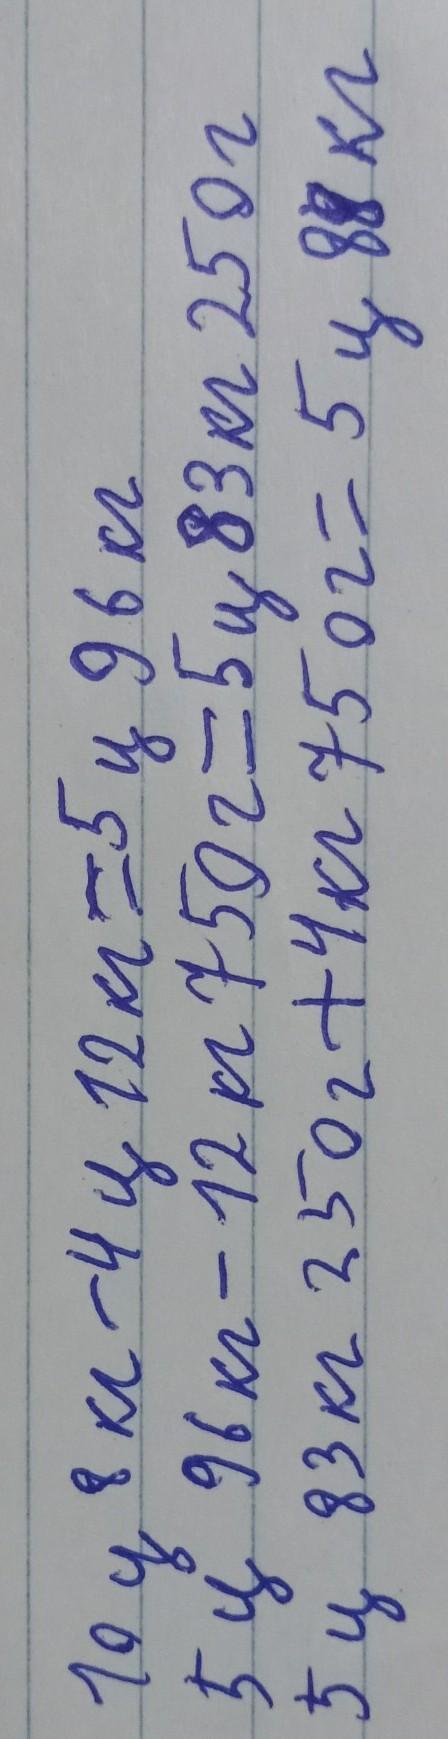 10 ц 8 кг - 4 ц 12 кг = 5 ц 96 кг
5 ц 96 кг - 12 кг 750 г = 5 ц 83 кг 250 г
5 ц 83 кг 250 г + 4 кг 750 г = 5 ц 88 кг